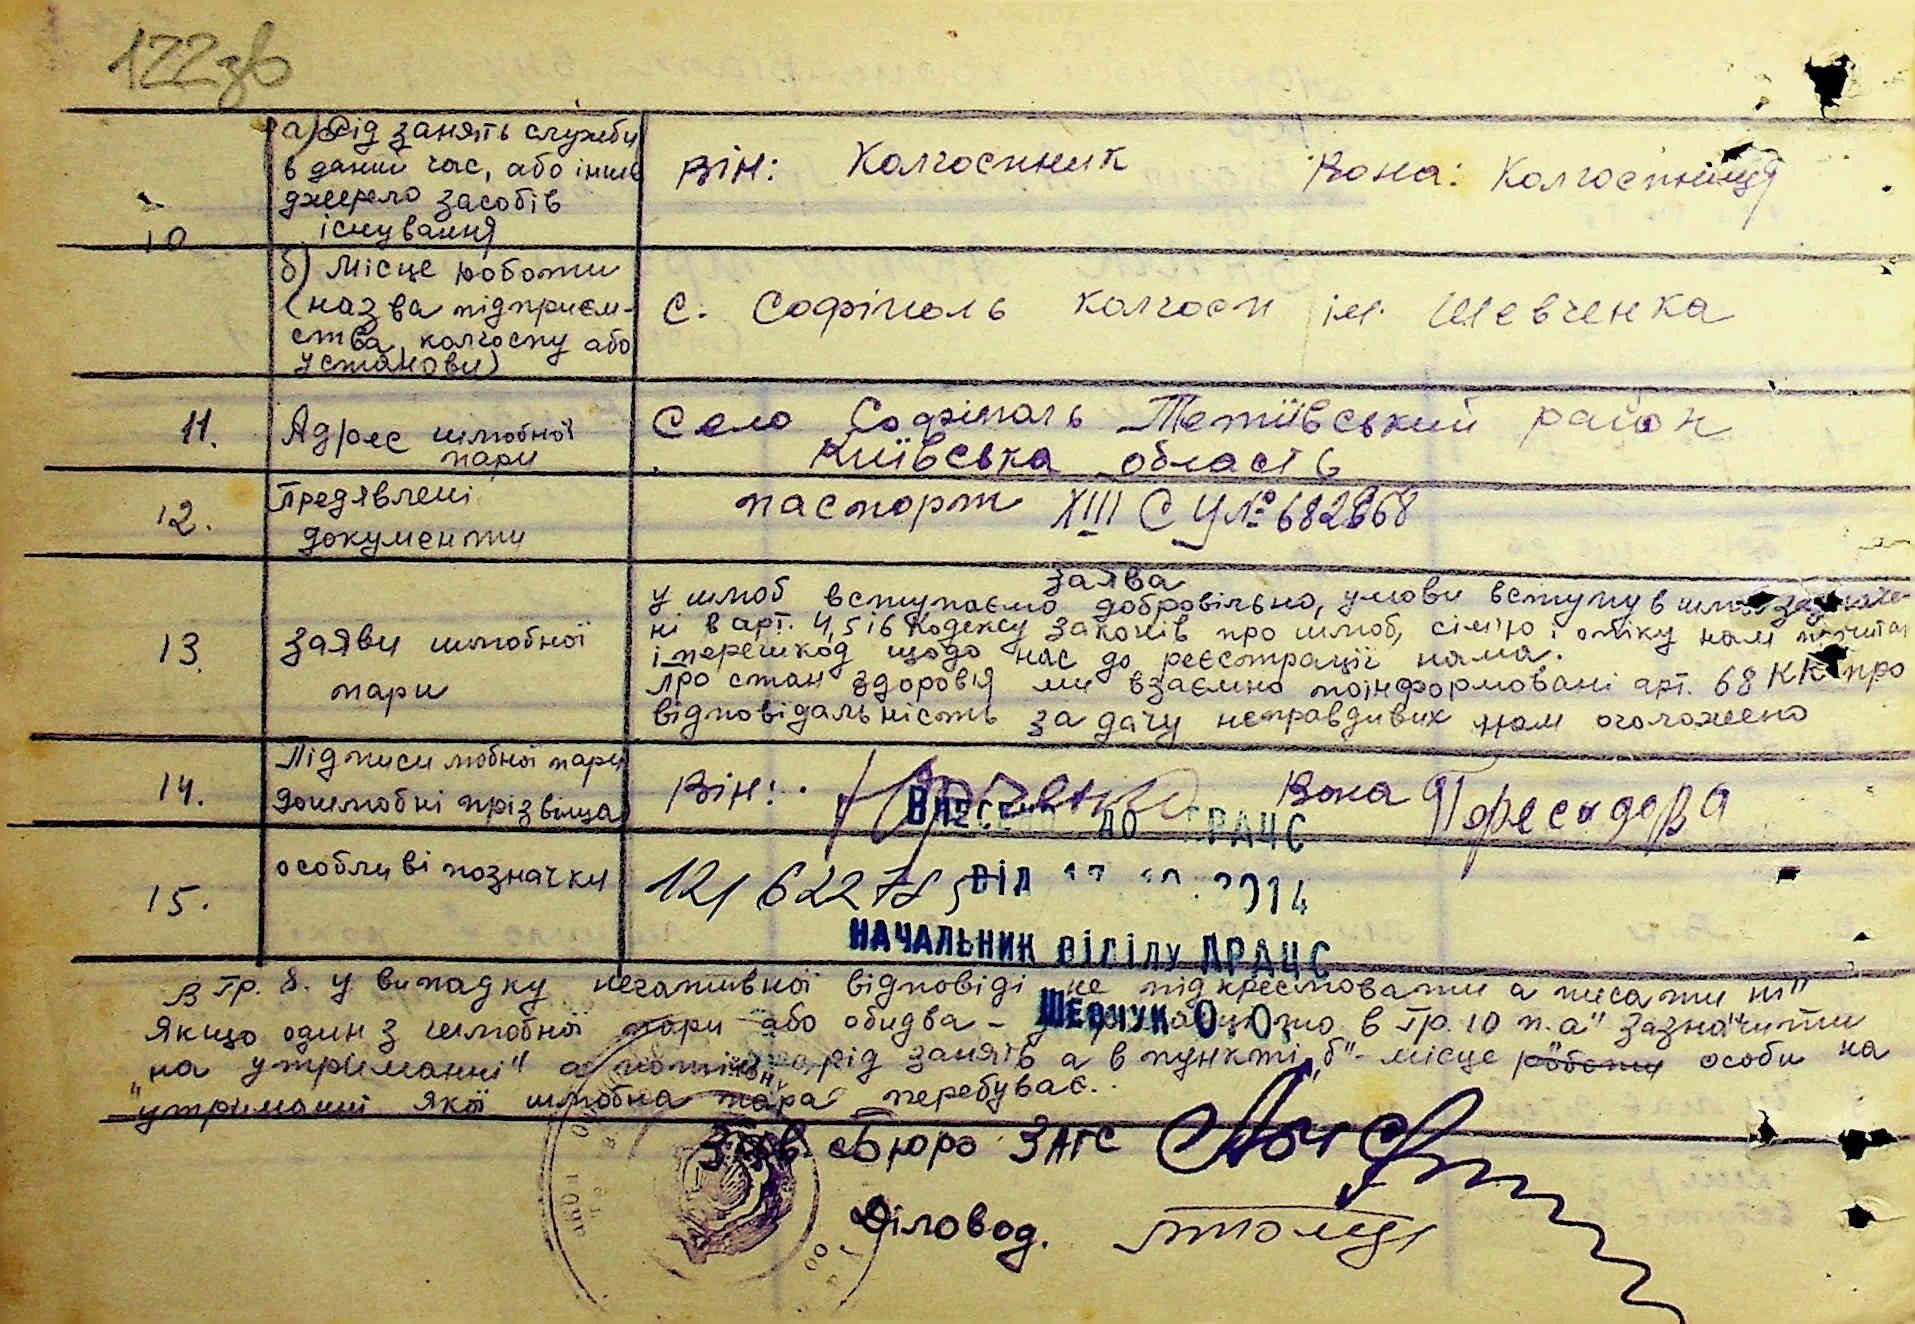 122зв
а) Рід занять служби
в даний час, або інше
джерело засобів
існування
Він: Колгоспник Вона: Колгоспниця
10
б) Місце роботи
(назва підприєм-
ства, колгоспу або
установи)
с. Софіполь колгосп ім. Шевченка
11.
Адрес шлюбної
пари
Село Софіполь Тетіївський район
Київська область
12.
Предявлені
документи
паспорт XIII СУ №
13.
заяви шлюбної
пари
Заява
у шлюб вступаємо добровільно, умови вступу в шлюб зазначе-
ні в арт. 4, 5 і 6 Кодексу законів про шлюб, сімю і опіку нам
і перешкод щодо нас до реєстрації нама.
про стан здоровія ми взаємно поінформовані арт. 68 КК про
відповідальність за дачу неправдивих нам оголошено
14.
Підписи любної пари
дошлюбні прізвища
Він: Вона
Внесено до ДРАЦС
15.
особливі позначки
від 2014
НАЧАЛЬНИК ВІДІЛУ ДРАЦС
ШЕВЧУК О.О.
В гр. 8. у випадку негативної відповіді не підкреслювати а писати ні"
Якщо один з шлюбної пари або обидва - в гр. 10 п. а" зазначити
"на утриманні" а рід занять а в пункті "б" - місце роботи особи на
"утриманні якої шлюбна пара перебуває.
Зав. Бюро ЗАГС
Діловод.